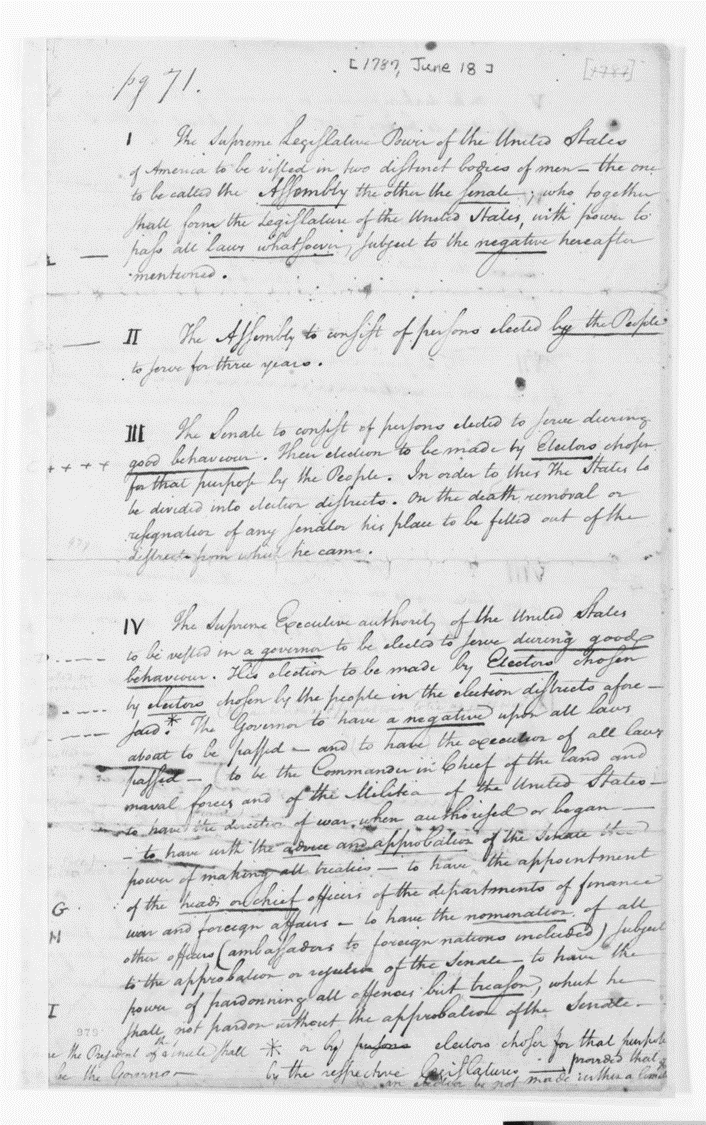 pg 71.
[1787, June 18]
[1787]
I The Supreme Legislative Power of the United States
of America to be vested in two distinct bodies of men – the one
to be called the Assembly the other the senate; who together
shall form the Legislature of the United States, with power to
pass all laws whatsoever, subject to the negative hereafter
mentioned.
II The Assembly to consist of persons elected by the People
to serve for three years.
III The Senate to consist of persons elected to serve during
good behaviour. Their election to be made by Electors chosen
for that purpose by the People. In order to this The States to
be divided into election districts. On the death removal or
resignation of any senator his place to be filled out of the
district from which he came.
++++
IV The Supreme Executive authority of the United States
to be vested in a governor to be elected to serve during good
behaviour. His election to be made by Electors chosen
by electors chosen by the people in the election districts afore–
said * The Governor to have a negative upon all laws
about to be passed – and to have the execution of all laws
passed – to be the Commander in Chief of the land and
naval forces and of the Militia of the United States –
to have the direction of war, when authorised or began –
– to have with the advice and approbation of the Senate the
power of making all treaties – to have the appointment
of the heads or chief officers of the departments of finance
war and foreign affairs – to have the nomination of all
other officers (ambassadors to foreign nations included) subject
to the approbation or rejection of the Senate – to have the
power of pardonning all offences but treason, which he
shall not pardon without the approbation of the Senate –
G
H
I
979
the President of the senate shall
be the Governor –
* or by persons electors chosen for that purpose
by the respective legislatures – provided that
an election be not made within a limited